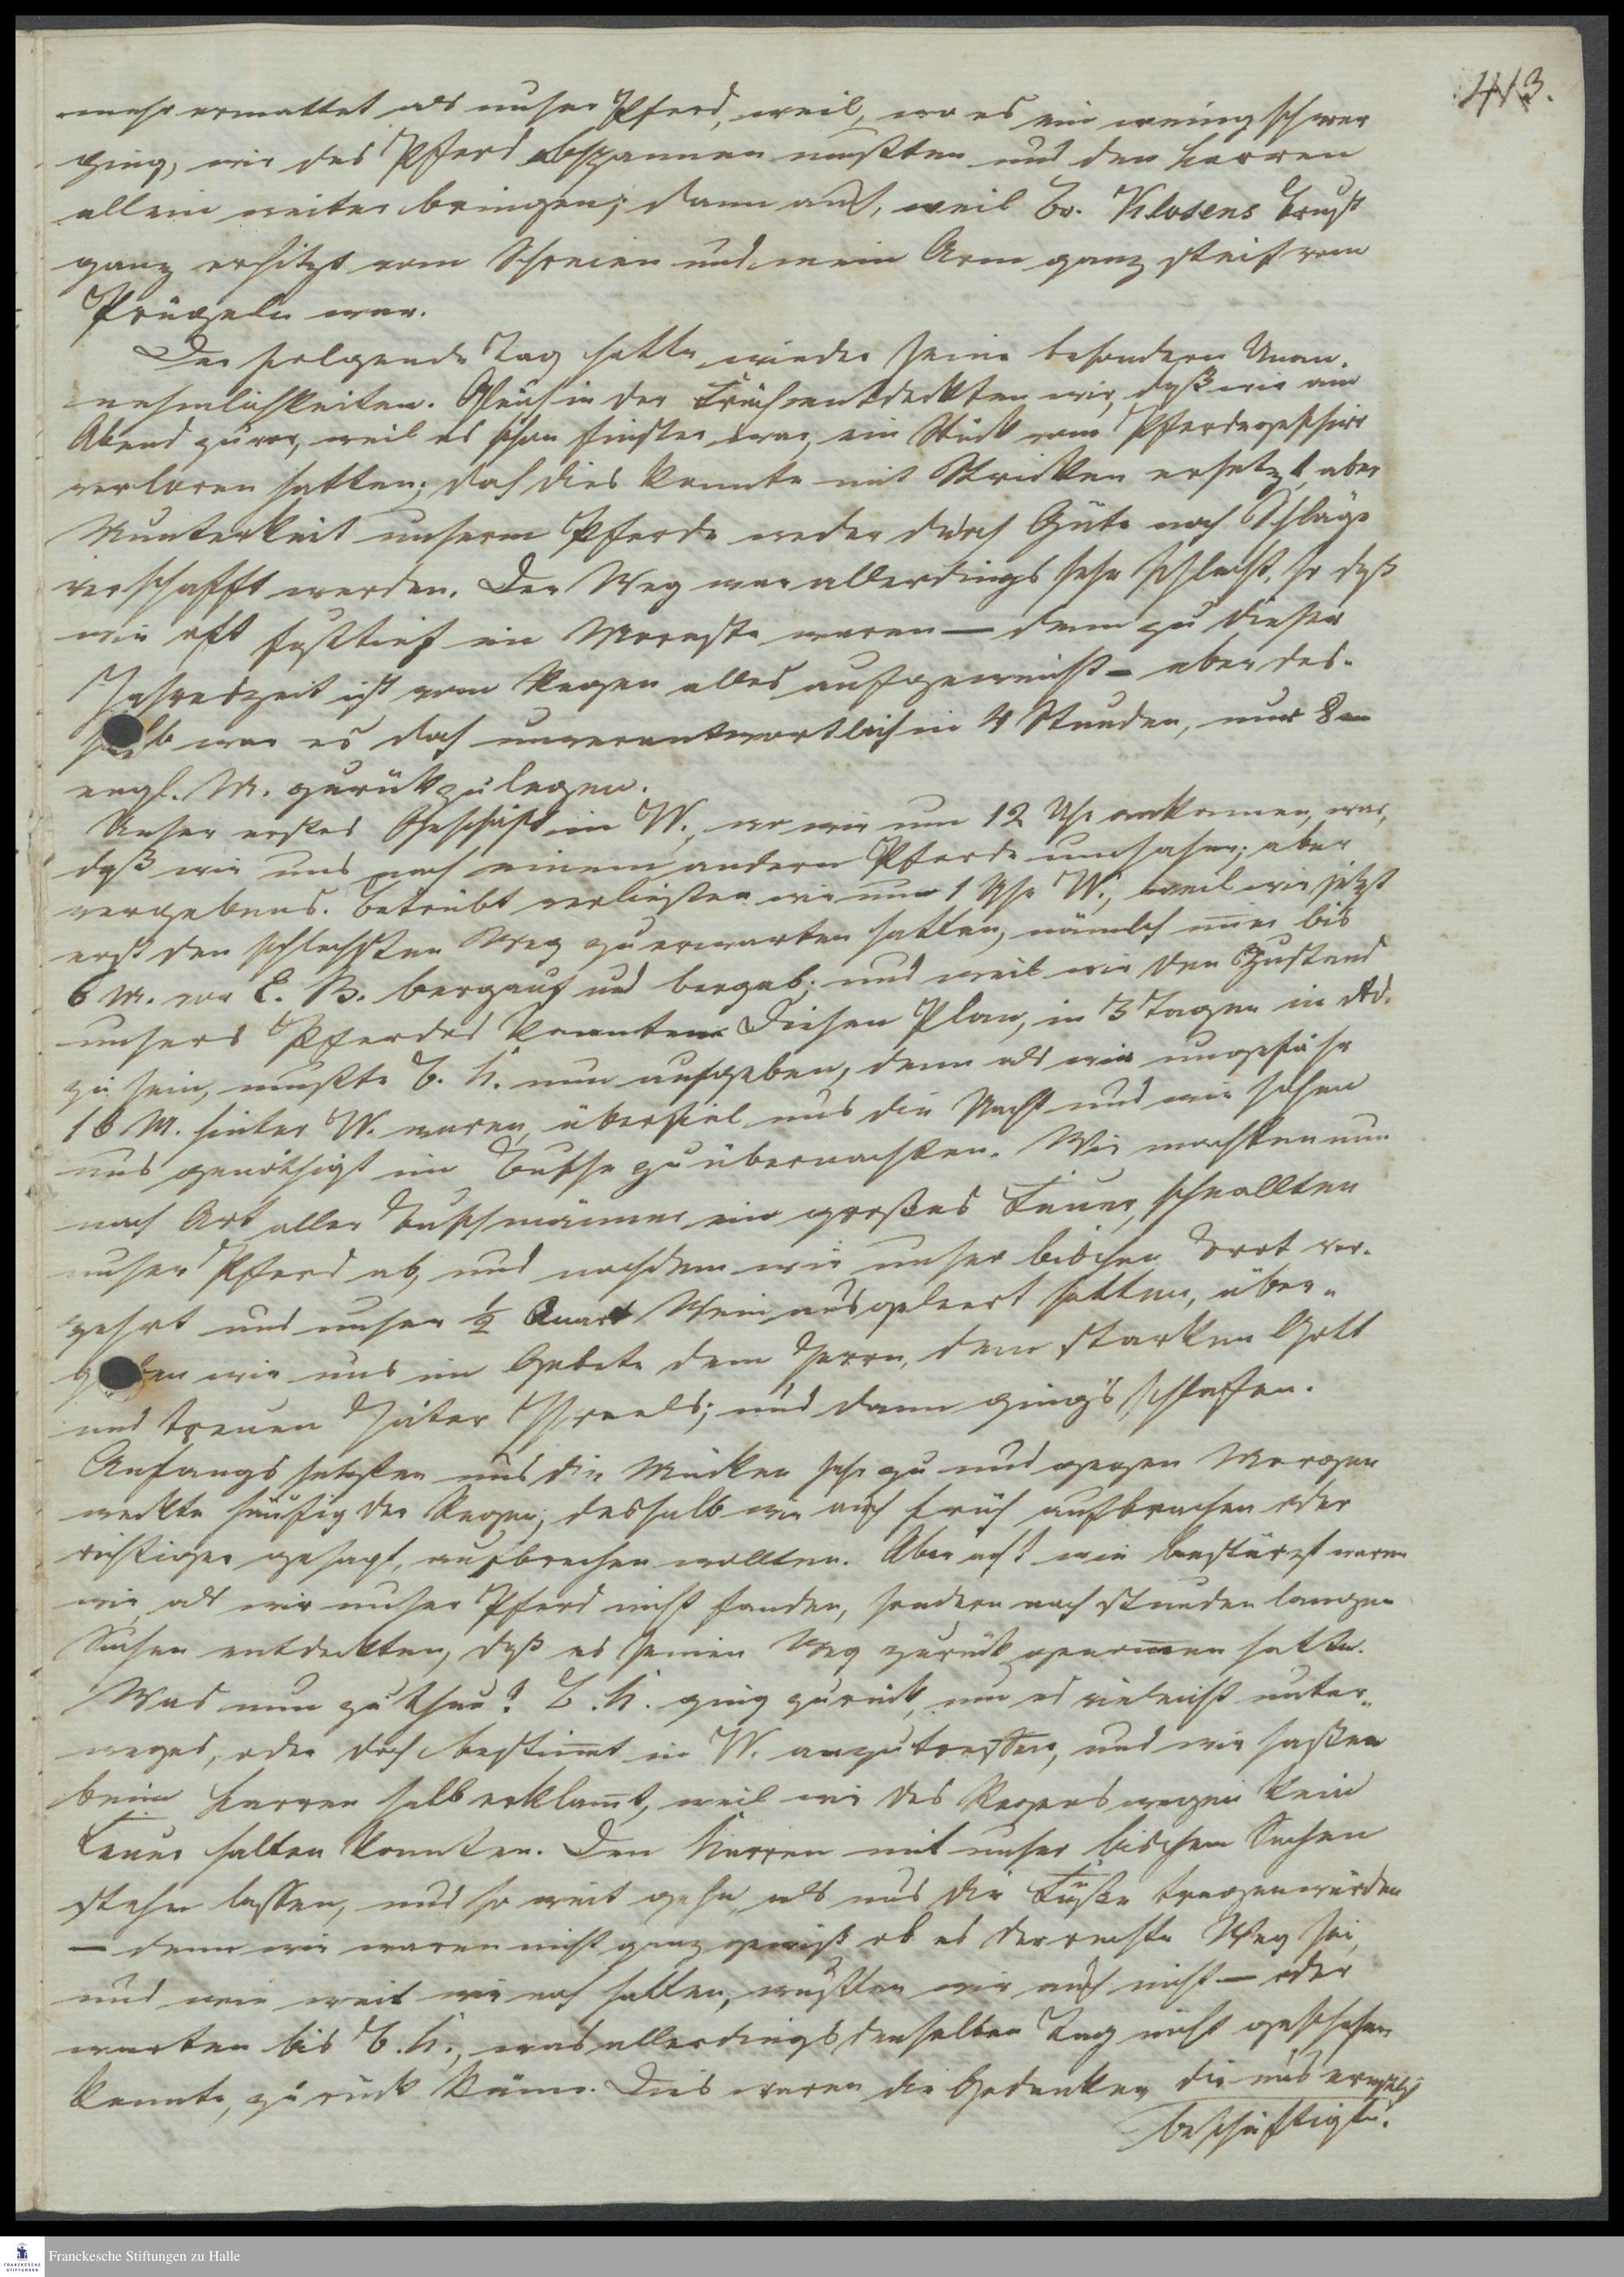 443.
mehr ermattet als unser Pferd, weil, wo es ein wenig schwer
ging, wir das Pferd abspannen mußten und den Karren
allein weiter bringen; dann auch, weil Br. Klosens Brust
ganz erhitzt vom Schreien und mein Arm ganz steif vom
Prügeln war.
Der folgende Tag hatte wieder seine besondern Unan-
nehmlichkeiten. Gleich in der Früh entdeckten wir, daß wir am
Abend zuvor, weil es schon finster war, ein Stück vom Pferdegeschirr
verloren hatten; doch dies konnte mit Stricken ersetzt, aber
Munterkeit unserm Pferde weder durch Güte noch Schläge
verschafft werden. Der Weg war allerdings sehr schlecht, so daß
wir oft fußtief im Moraste waren — denn zu dieser
Jahreszeit ist vom Regen alles aufgeweicht — aber des-
halb war es doch unverantwortlich in 4 Stunden, nur 8
engl. M. zurückzulegen.
Unser erstes Geschäft in W., wo wir um 12 Uhr ankamen, war,
daß wir uns nach einem andern Pferde umsahen; aber
vergebens. Betrübt verließen wir um 1 Uhr W., weil wir jetzt
erst den schlechtsten Weg zu erwarten hatten, nämlich immer bis
6 M. vor E. B. bergauf und bergab; und weil wir den Zustand
unsers Pferdes kannten. Diesen Plan, in 3 Tagen in Ad.
zu sein, mußte B. K. nun aufgeben, denn als wir ungefähr
16 M. hinter W. waren, überfiel uns die Nacht und wir sahen
uns genöthigt im Busche zu übernachten. Wir machten nun
nach Art aller Buschmänner ein großes Feuer, schnallten
unser Pferd ab, und nachdem wir unser bischen Brot ver-
zehrt und unser ½ Quart Wein ausgeleert hatten, über-
gaben wir uns im Gebete dem Herrn, dem starken Gott
und treuen Hüter Israels; und dann ging's schlafen.
Anfangs setzten uns die Mücken sehr zu und gegen Morgen
weckte häufig der Regen; deshalb wir auch früh aufbrachen oder
richtiger gesagt, aufbrechen wollten. Aber ach! wie bestürzt waren
wir als wir unser Pferd nicht fanden, sondern nach stundenlangem
Suchen entdeckten, daß es seinen Weg zurück genommen hatte.
Was nun zu thun? B. K. ging zurück, um es vielleicht unter-
weges, oder doch bestimmt in W. anzutreffen, und wir saßen
beim Karren halb erklamt, weil wir des Regens wegen kein
Feuer halten konnten. Den Karren mit unser bischen Sachen
stehn lassen, und so weit gehn, als uns die Füße tragen würden
— denn wir waren nicht ganz gewiß ob es der rechte Weg sei,
und wie weit wir noch hatten, wußten wir auch nicht — oder
warten bis B. K., was allerdings denselben Tag nicht geschehen
konnte, zurück käme. Dies waren die Gedanken die uns
beschäftigten.
Franckesche Stiftungen zu Halle
FRANCKESCHE
STIFTUNGEN